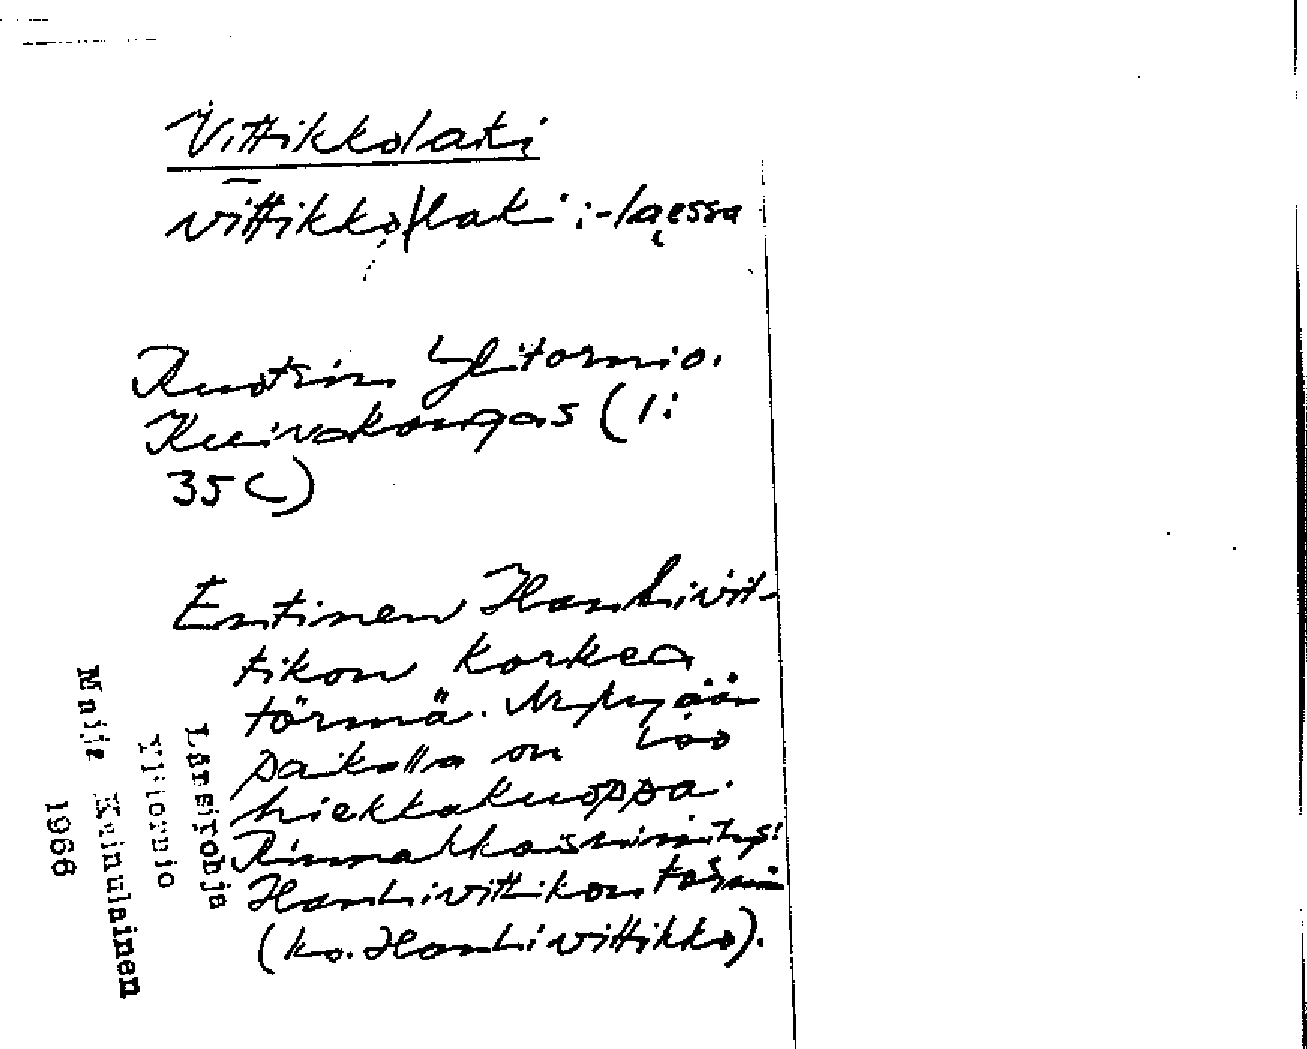 Vittikkolaki
vittikko/laki : -laessa
Ruotsin Ylitornio.
Kuivakangas (1:
35 C)
Entinen Hanhivit-
tikon korkea
törmä. Nykyään
paikalla on iso
hiekkakuoppa.
Rinnakkaisnimitys:
Hanhivittikon törmä
(ks. Hanhivittikko).
Länsipohja
Ylitornio
Maija Kainulainen
1966